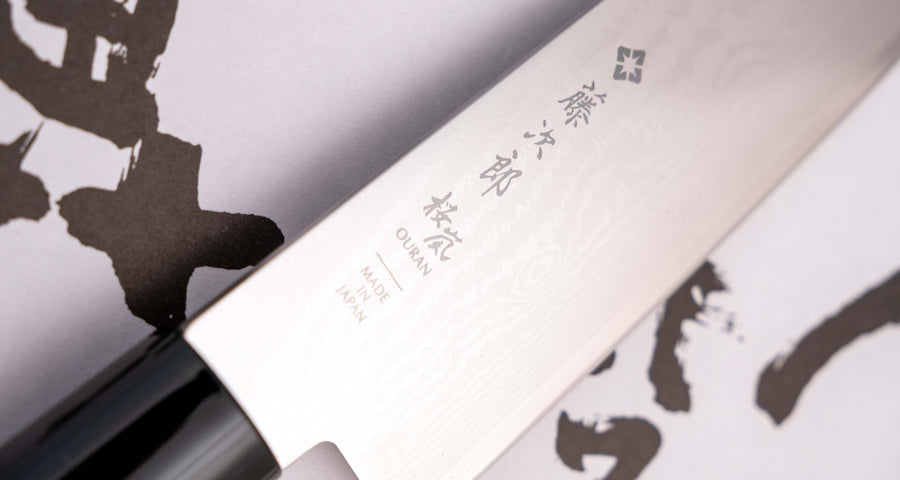 藤次郎
桜嵐
OURAN
MADE
IN
JAPAN